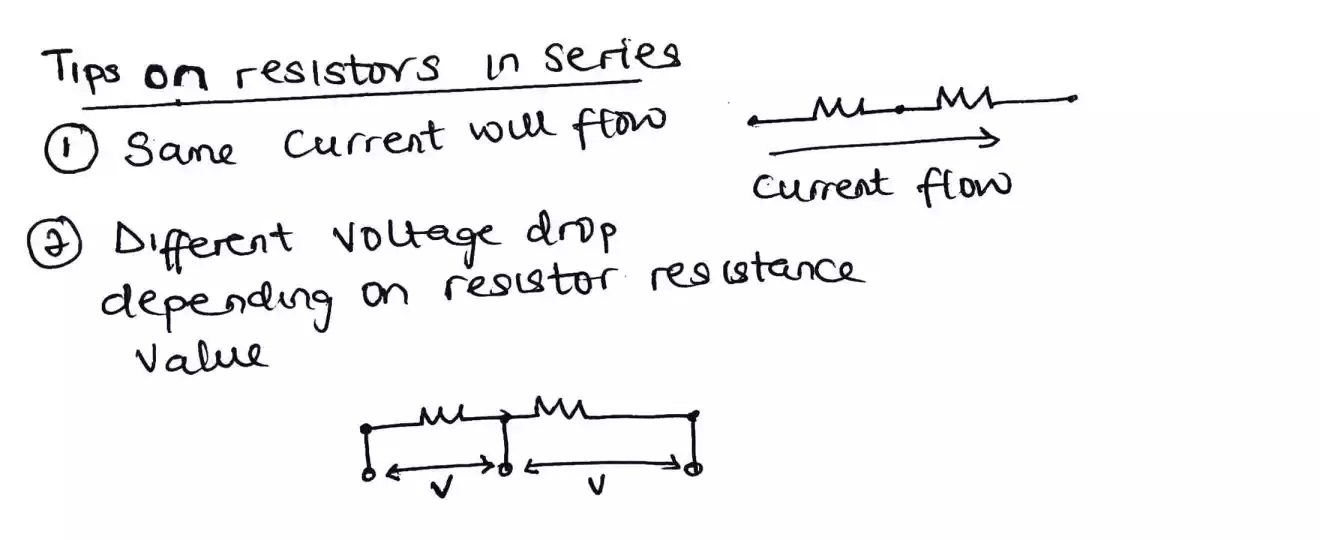 Tips on resistors in series
① Same current will flow
current flow
② Different voltage drop
depending on resistor resistance
value
V
V